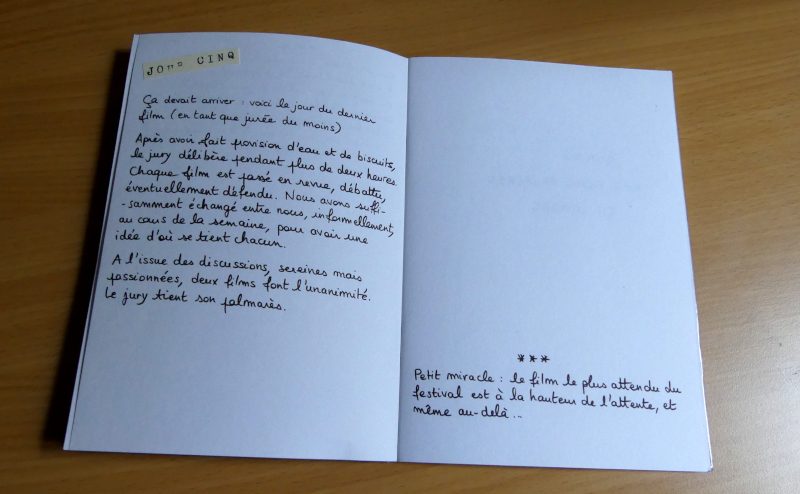 JOUR CINQ
Ça devait arriver : voici le jour du dernier
film (en tant que jurée du moins)
Après avoir fait provision d'eau et de biscuits,
le jury délibère pendant plus de deux heures.
Chaque film est passé en revue, débattu,
éventuellement défendu. Nous avons suffi-
-samment échangé entre nous, informellement,
au cours de la semaine, pour avoir une
idée d'où se tient chacun.
A l'issue des discussions, sereines mais
passionnées, deux films font l'unanimité.
Le jury tient son palmarès.
***
Petit miracle : le film le plus attendu du
festival est à la hauteur de l'attente, et
même au-delà...